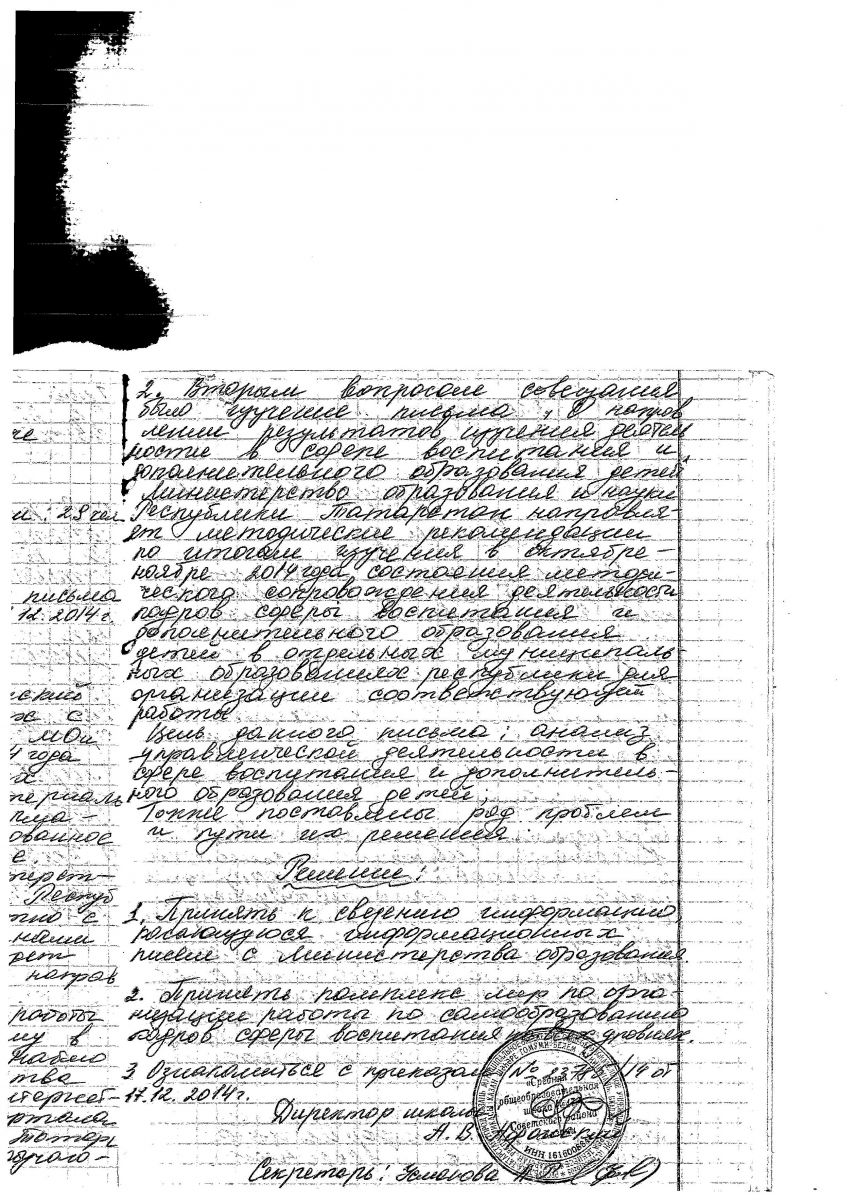 че
и: 29 чел
письма
12.2014 г.
ский
ж с
МОи
4 года
х
териаль
ованнос
е.
терст-
Респуб
тно с
нами
рет
направ
работы
му в
тва
ртала
Татар
2. Вторым вопросом совещания
было изучение письма „О направ
лении результатов изучения деятель
ности в сфере воспитания и
дополнительного образования детей"
Министерство образования и науки
Республики Татарстан направля-
ет методические рекомендации
по итогам изучения в октябре-
ноябре 2014 года состояния методи-
ческого сопровождения деятельности
кадров сферы воспитания и
дополнительного образования
детей в отдельных муниципаль
ных образованиях республики для
организации соответствующей
работы.
Цель данного письма: анализ
управленческой деятельности в
сфере воспитания и дополнитель-
ного образования детей,
Также поставлены ряд проблем
и пути их решения.
Решение:
1. Принять к сведению информацию
информационных
писем с Министерства образования.
2. Принять комплекс мер по орга-
низации работы по самообразованию
кадров сферы воспитания на всех уровнях.
3 Ознакомиться с приказом № /14 от
17.12.2014г.
Директор школы
А.В.
Секретарь: Усманова
«Средняя
общеобразовательная
школа
Советского района
ИНН 16160088